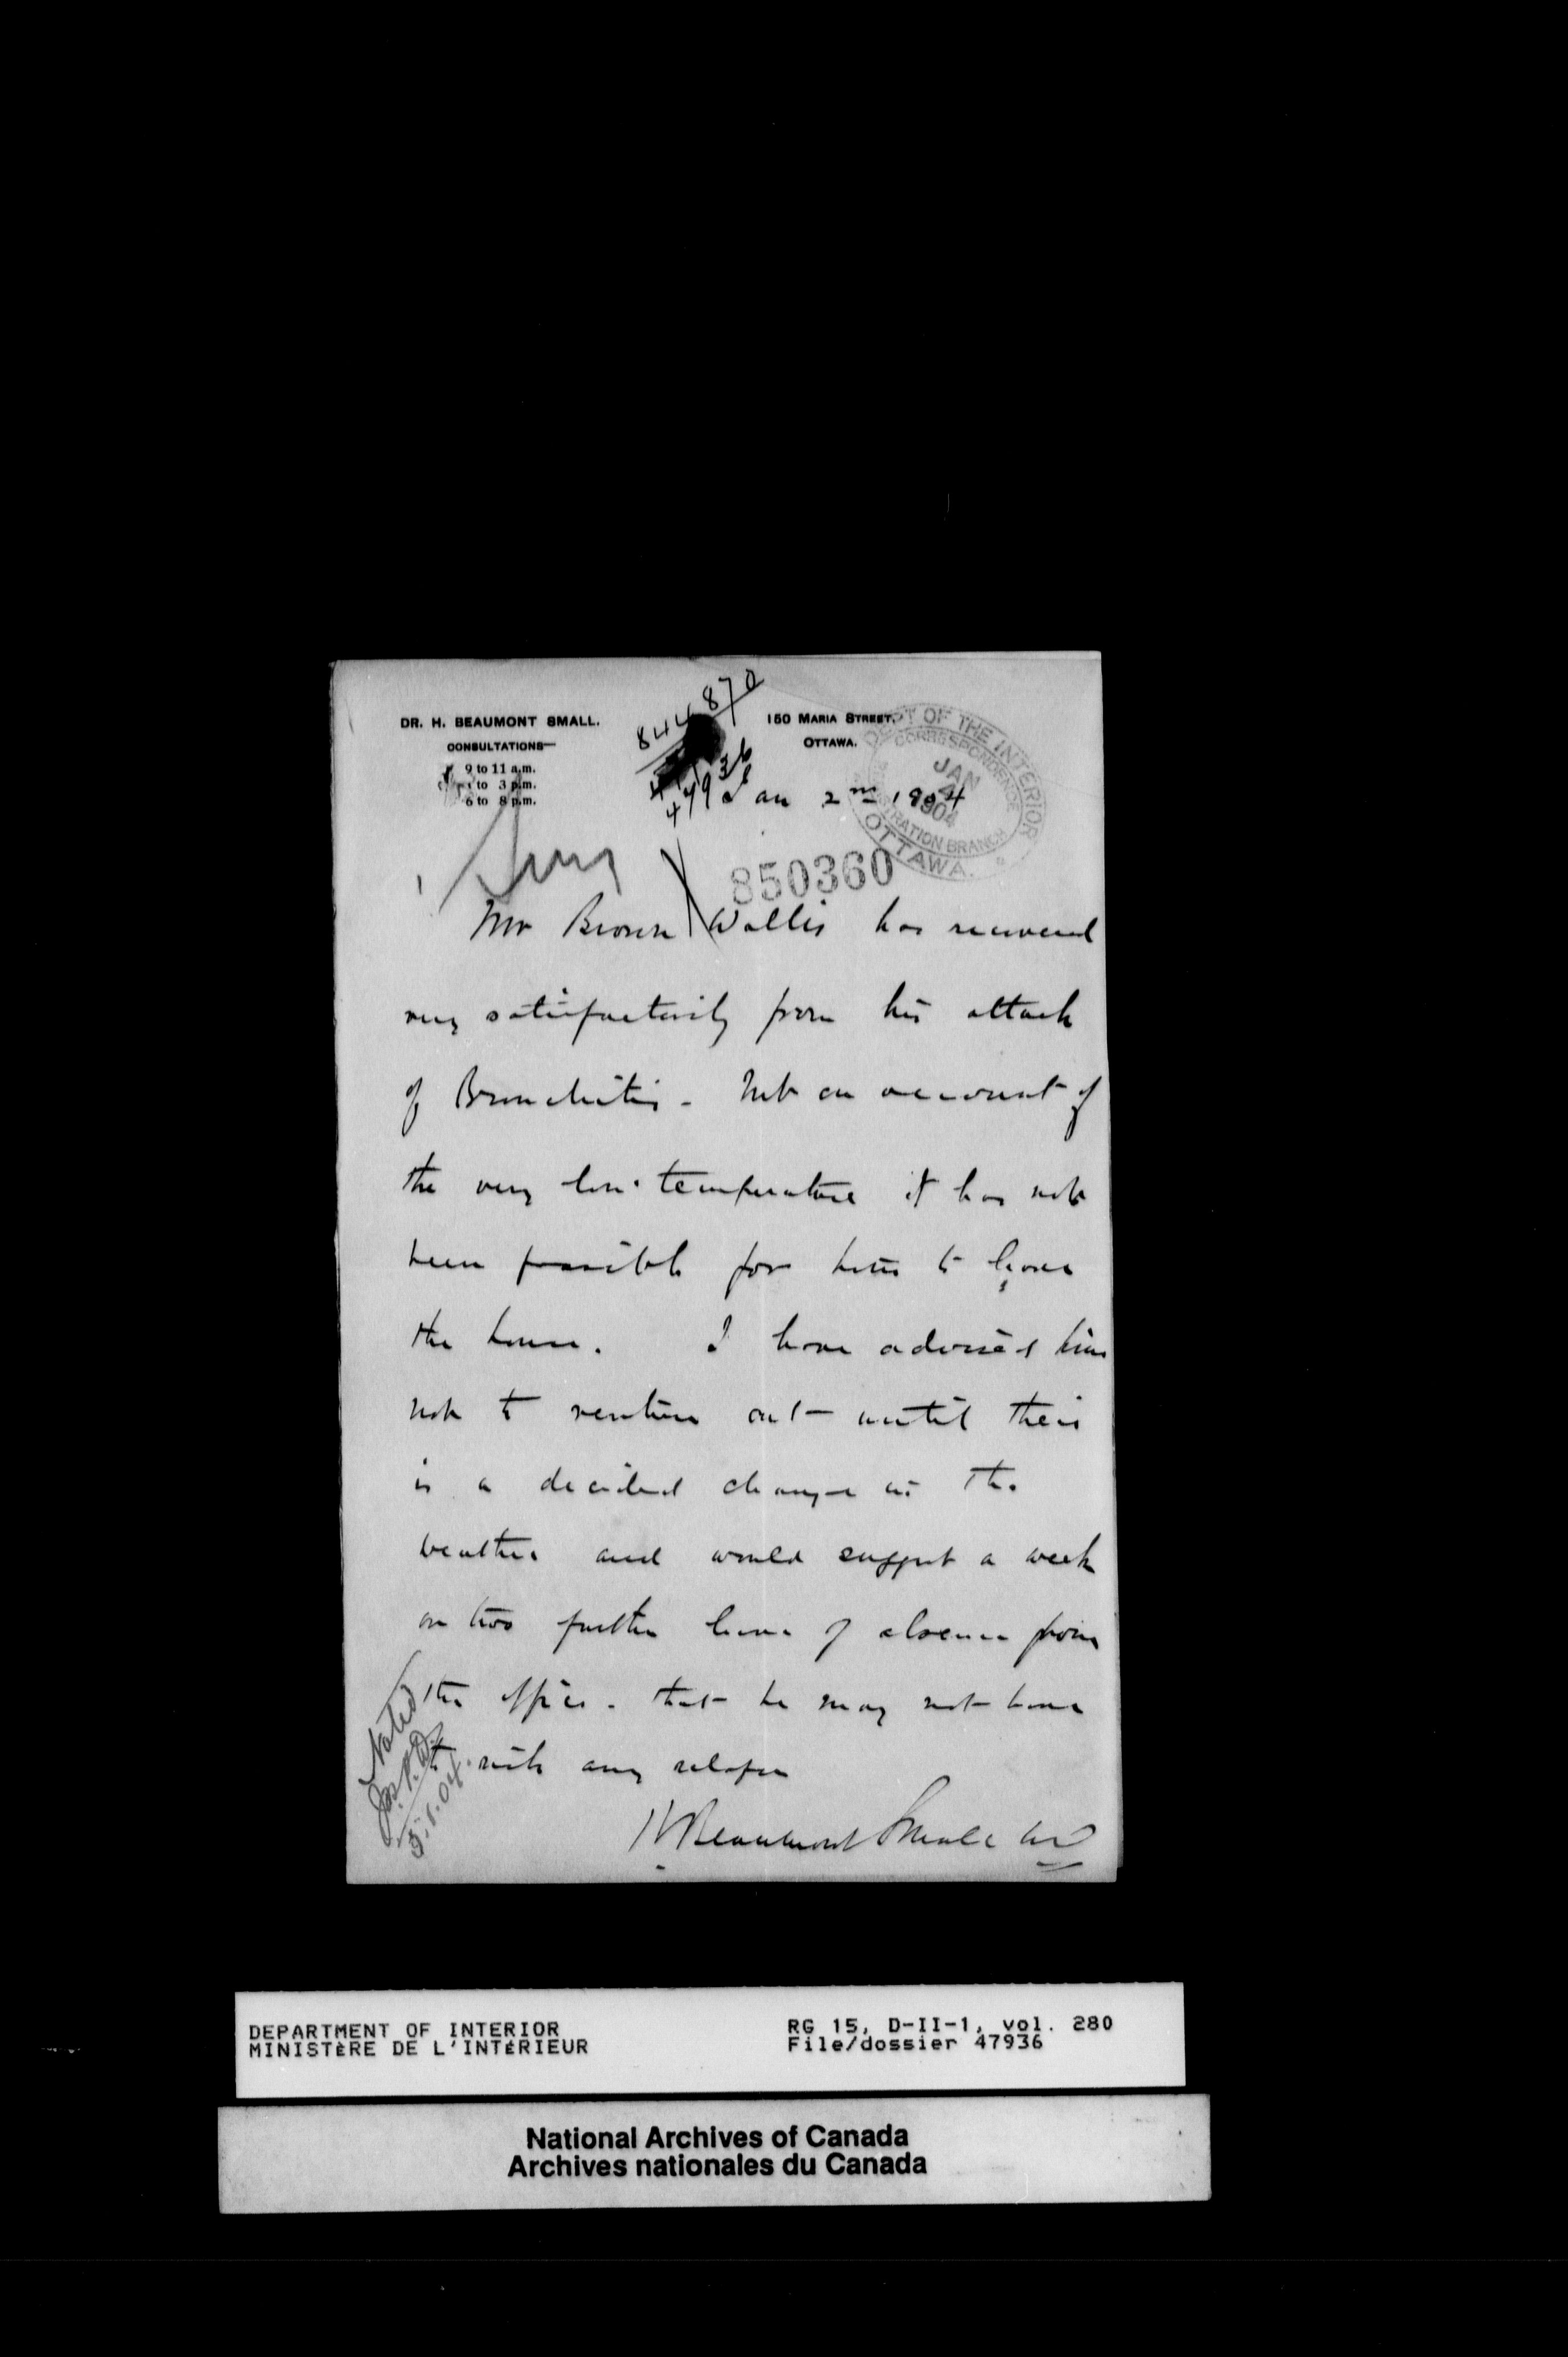 844870
DR. H. BEAUMONT SMALL.
CONSULTATIONS—
9 to 11 a.m.
1 to 3 p.m.
6 to 8 p.m.
150 MARIA STREET.
OTTAWA.
47936
DEPT OF THE INTERIOR
CORRESPONDENCE
JAN 4 1904
REGISTRATION BRANCH
OTTAWA.
Jan 2nd 1904
850360
Mr Brown Wallis has recovered
very satisfactorily from his attack
of Bronchitis - but on account of
the very low temperature it has not
been possible for him to leave
the house. I have advised him
not to venture out until there
is a decided change in the
weather and would suggest a week
or two further leave of absence from
the office - that he may not have
to risk any relapse
H Beaumont Small MD
Noted
5.1.04
DEPARTMENT OF INTERIOR
MINISTÈRE DE L'INTÉRIEUR
RG 15, D-II-1, vol. 280
File/dossier 47936
National Archives of Canada
Archives nationales du Canada